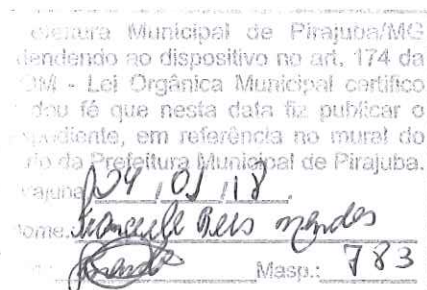 Municipal de Pirajuba/MG
ao dispositivo no art. 174 da
- Lei Orgânica Municipal certifico
dou fé que nesta data fiz publicar o
expediente, em referência no mural do
da Prefeitura Municipal de Pirajuba.
04 / 01 / 18
Reis Mendes
Masp.: 783